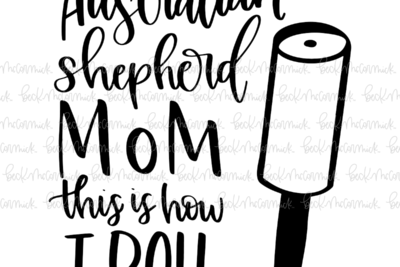 Australian
shepherd
MOM
this is how
I ROLL